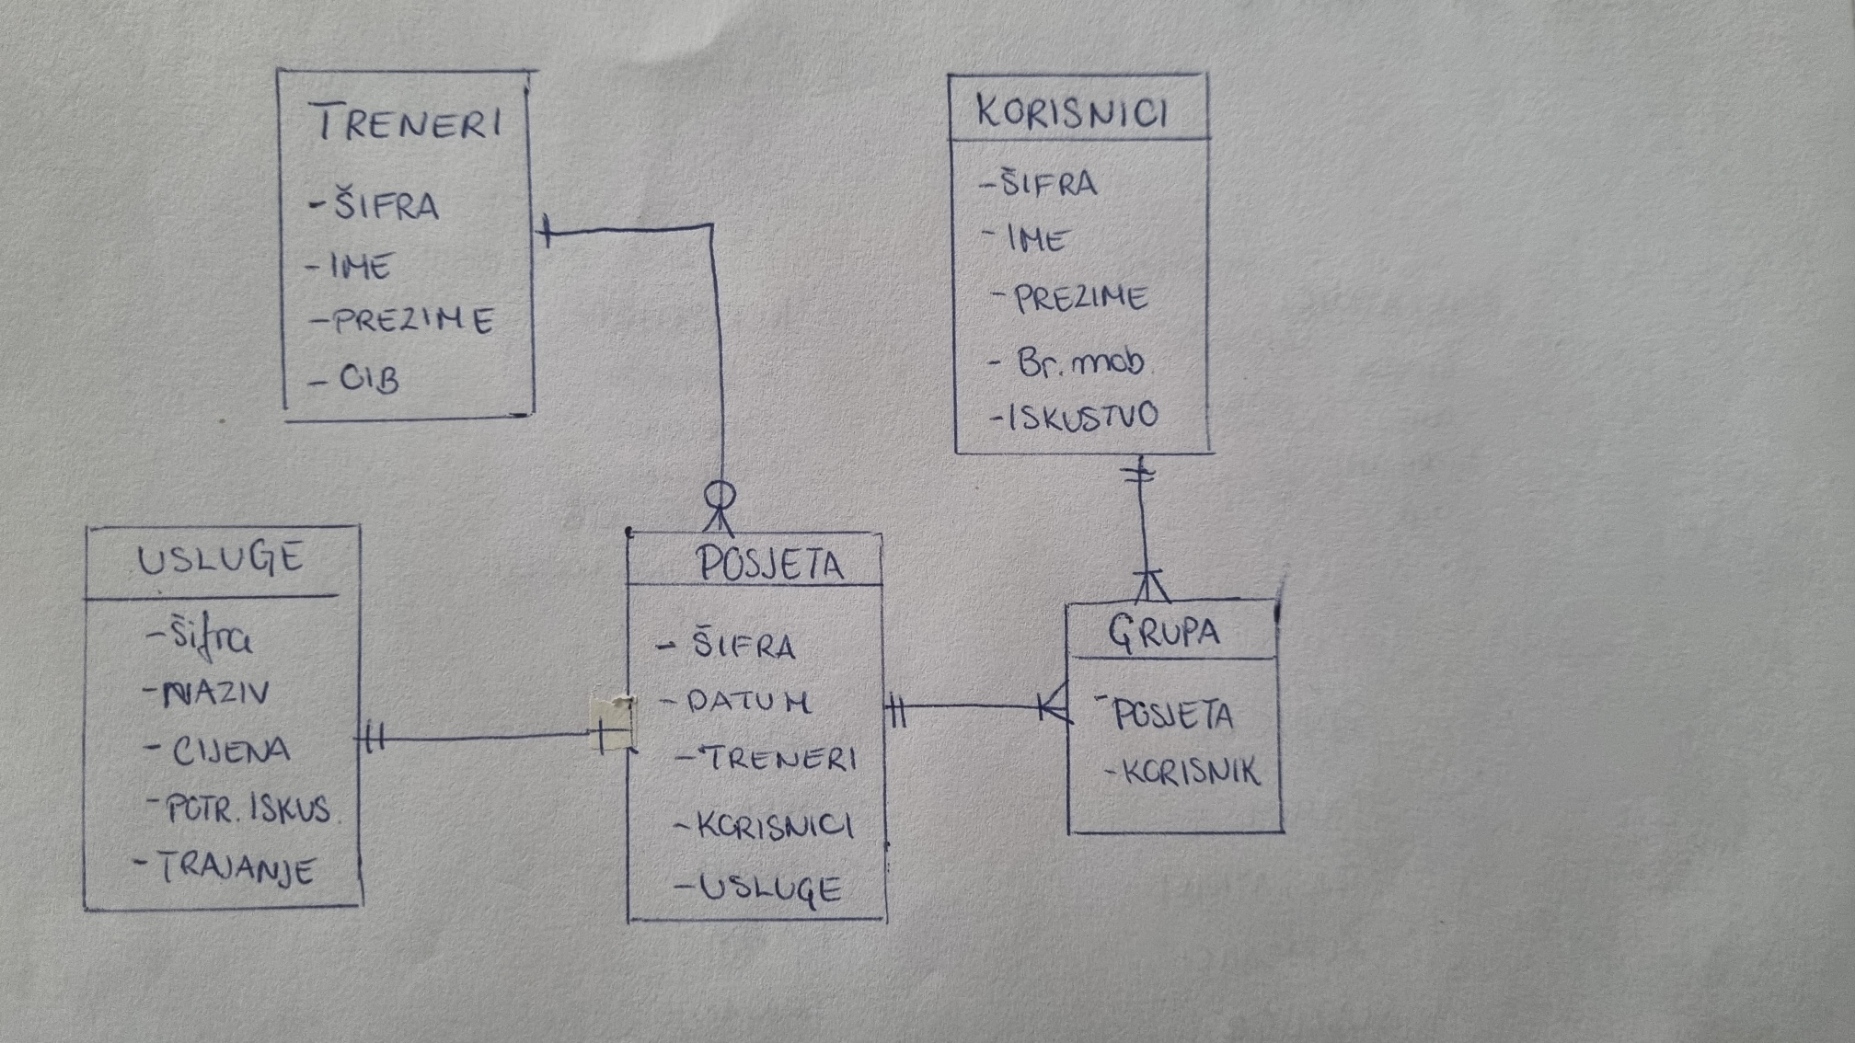 TRENERI
- ŠIFRA
- IME
- PREZIME
- OIB
KORISNICI
- ŠIFRA
- IME
- PREZIME
- Br. mob.
- ISKUSTVO
USLUGE
- Šifra
- NAZIV
- CIJENA
- POTR. ISKUS.
- TRAJANJE
POSJETA
- ŠIFRA
- DATUM
- TRENERI
- KORISNICI
- USLUGE
GRUPA
- POSJETA
- KORISNIK